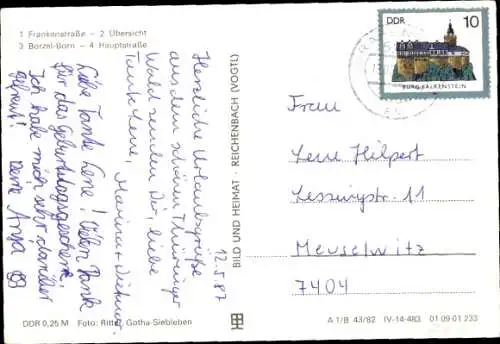 1 Frankenstraße – 2 Übersicht
3 Borzel-Born – 4 Hauptstraße
12.5.87
Herzliche Urlaubsgrüße
aus dem schönen Thüringer
Wald senden Dir, liebe
Tante Lene, Marina + Dietmar.
Liebe Tante Lene! Vielen Dank
für das Geburtstagsgeschenk.
Ich habe mich sehr darüber
gefreut! Deine Anja
BILD UND HEIMAT · REICHENBACH (VOGTL)
DDR
10
BURG FALKENSTEIN
Frau
Lene Hilpert
Lessingstr. 11
Meuselwitz
7404
DDR 0,25 M Foto: Ritter, Gotha-Siebleben
A 1/B 43/82 IV-14-483 01 09 01 233